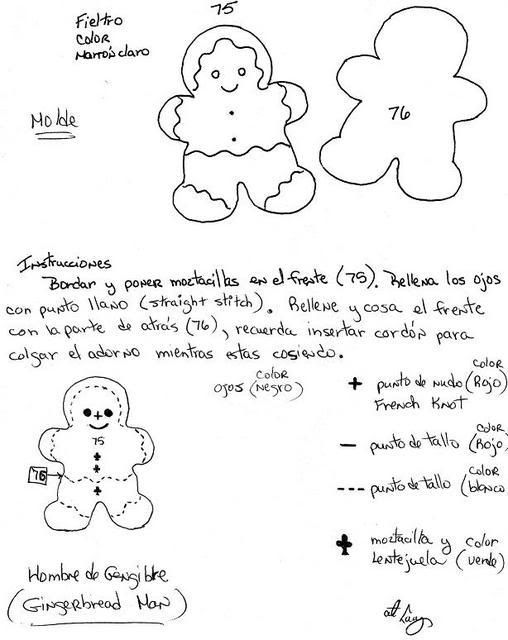 75
Fieltro
color
Marrón claro
76
Molde
Instrucciones
Bordar y poner moztacillas en el frente (75). Rellena los ojos
con punto llano (straight stitch). Rellene y cosa el frente
con la parte de atrás (76), recuerda insertar cordón para
colgar el adorno mientras estas cosiendo.
ojos (color Negro)
+ punto de nudo (color Rojo)
French Knot
— punto de tallo (color Rojo)
---- punto de tallo (color blanco
moztacilla y color
lentejuela (verde)
75
76
Hombre de Gengibre
(Gingerbread Man)